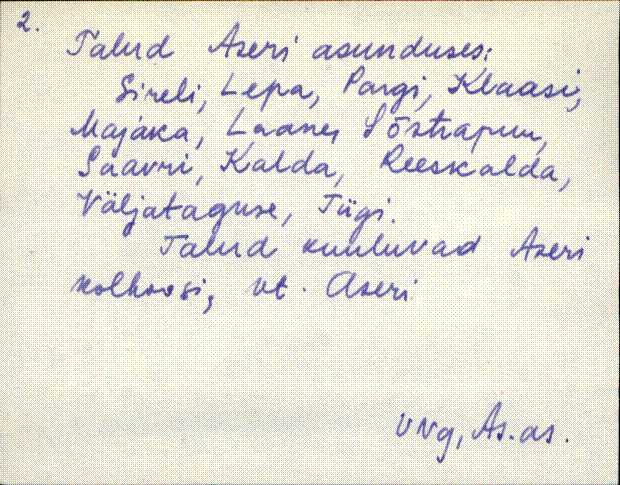 2.
Talud Aseri asunduses:
Sireli, Lepa, Pargi, Klaasi,
Majaka, Laane, Sõstrapuu,
Saavri, Kalda, Reeskalda,
Väljataguse, Tügi.
Talud kuuluvad Aseri
kolhoosi, vt. Aseri
VNg, As. as.